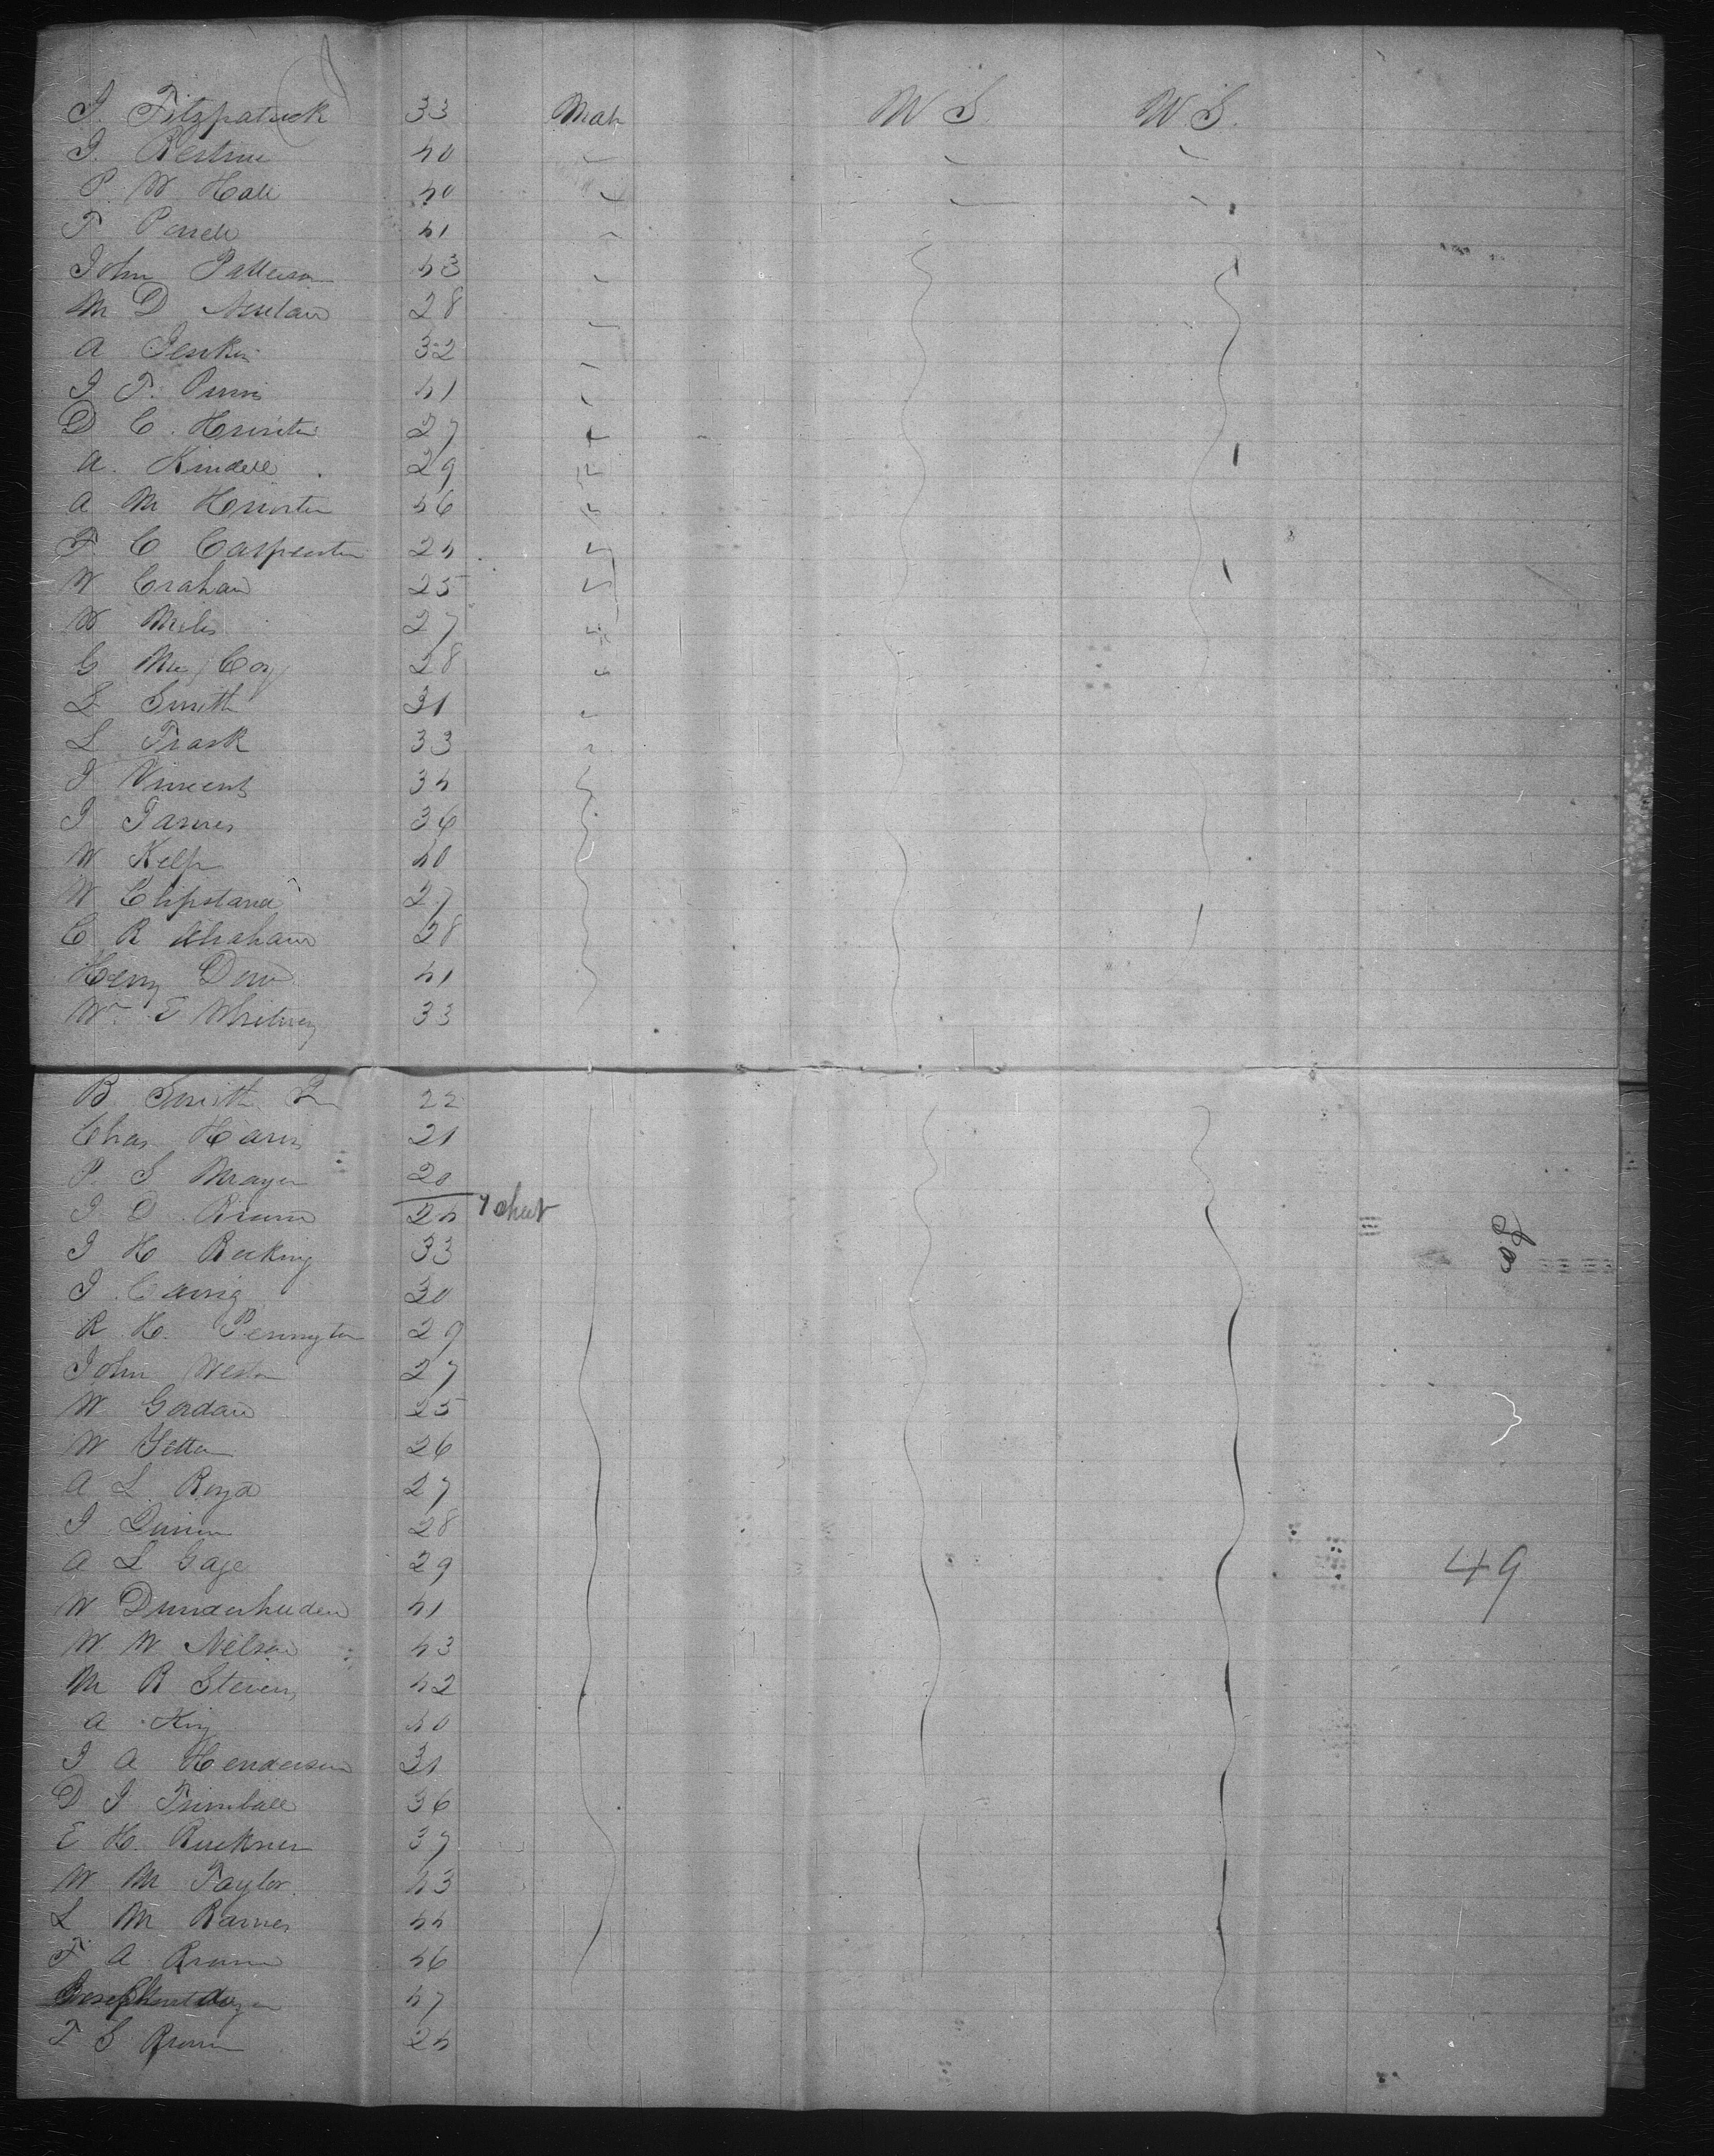 J. Fitzpatrick 33 Male W S. W S.
J. Bertrue 40
P. W Hall 40
T Powell 41
John Patterson 43
M D Neulan 28
A Jenkin 32
J T. Purvis 41
D C. Hunter 27
A. Kindell 29
A M Hunter 46
F C Carpenter 24
W Grahan 25
W Miles 27
G Mc Coy 28
L Smith 31
L Trask 33
J Vincent 34
J James 36
W Kelp 40
W Clipstand 27
C R Abraham 28
Henry Dow 41
Wm E Whitney 33
B Smith Jr 22
Chas Harris 21
P. S Mrayer 20
J D Brown 24 1 sheet
J H Recking 33
J Carrig 30
R H. Pennington 29
John Weston 27
W Gordan 25
W Getter 26
A L Boyd 27
J Dunn 28
A L Gage 29 49
W Dunderhuden 41
W W Nelson 43
M B Stevens 42
A King 40
J A Henderson 31
D J Trimball 36
E H. Buckner 37
W M Taylor 43
L M Barnes 44
F A Brown 46
47
T S Brown 24